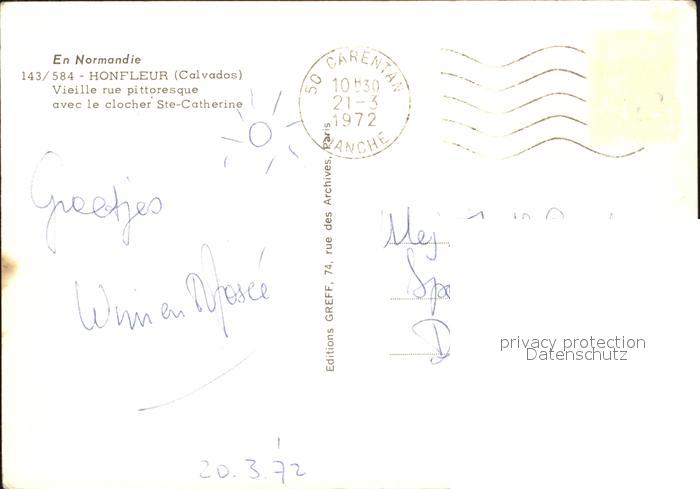 En Normandie
143/584 - HONFLEUR (Calvados)
Vieille rue pittoresque
avec le clocher Ste-Catherine
50 CARENTAN
10H30
21-3
1972
MANCHE
Groetjes
Wim en Josée
20.3.72
Editions GREFF, 74, rue des Archives, Paris
Mej
privacy protection
Datenschutz